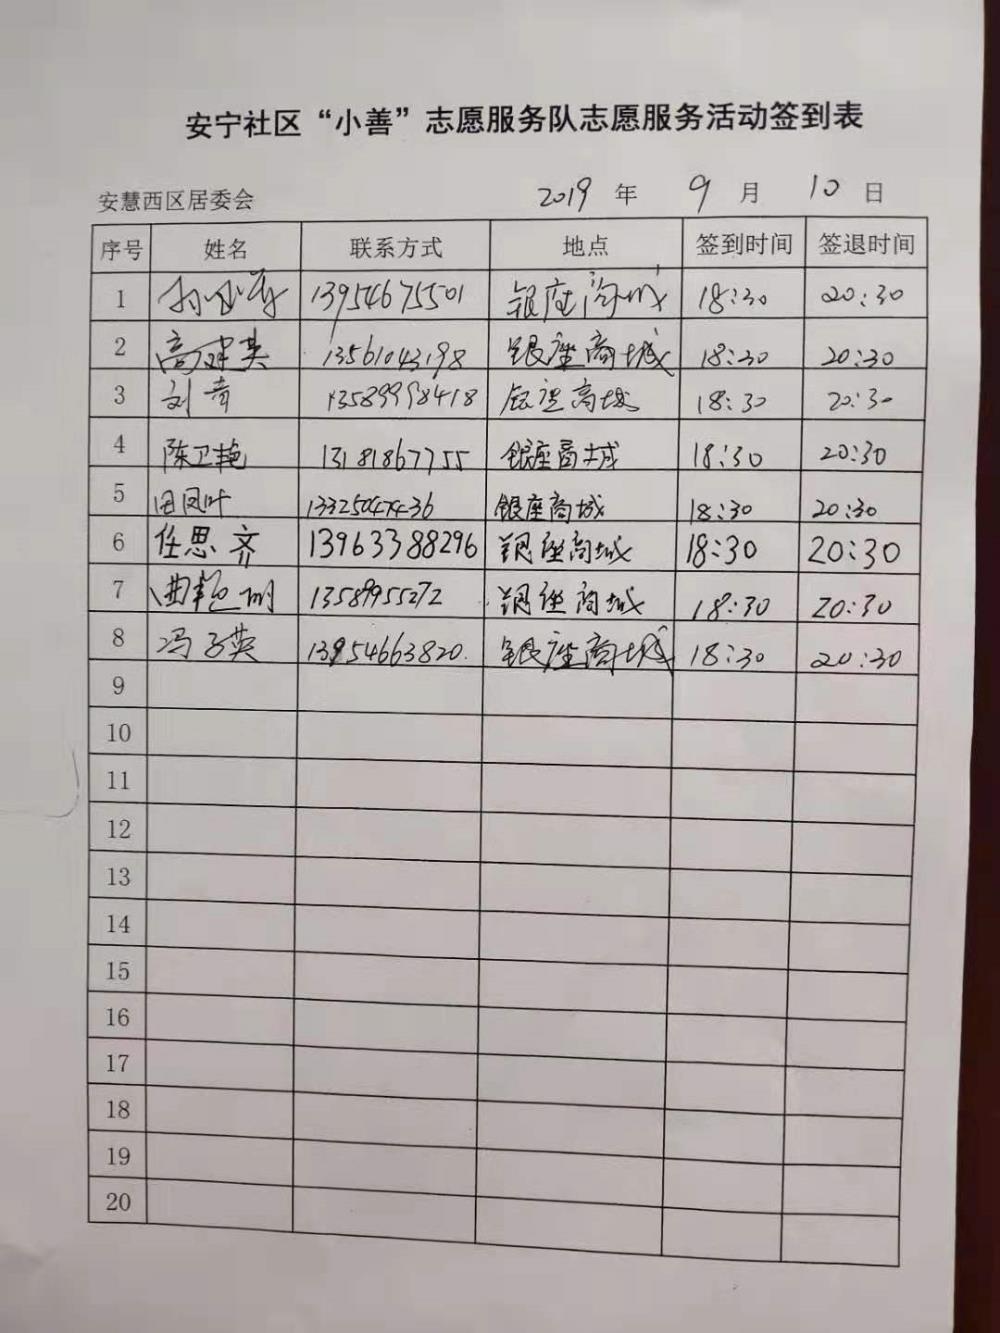 安宁社区“小善”志愿服务队志愿服务活动签到表
安慧西区居委会 2019 年 9 月 10 日
序号 姓名 联系方式 地点 签到时间 签退时间
1 13954675501 银座商城 18:30 20:30
2 高建英 13561043198 银座商城 18:30 20:30
3 刘青 13589998418 银座商城 18:30 20:30
4 陈卫艳 13181867755 银座商城 18:30 20:30
5 田凤叶 13325047436 银座商城 18:30 20:30
6 任思齐 13963388296 银座商城 18:30 20:30
7 曲艳明 13589955272 银座商城 18:30 20:30
8 冯子英 13954663820. 银座商城 18:30 20:30
9
10
11
12
13
14
15
16
17
18
19
20